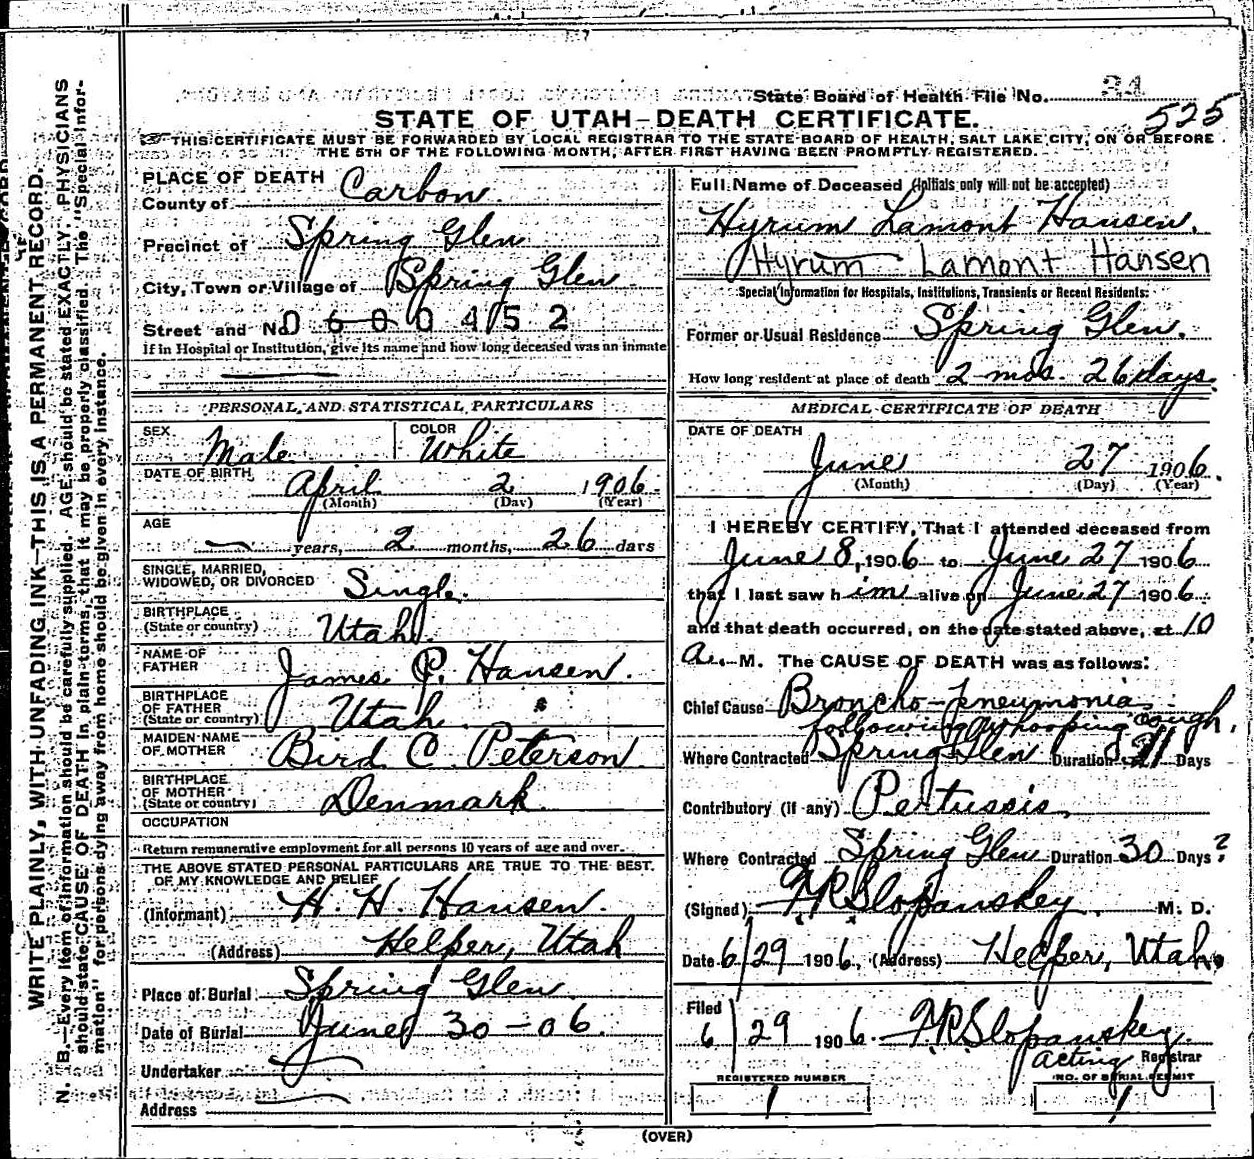 State Board of Health File No. 34
525
STATE OF UTAH—DEATH CERTIFICATE.
THIS CERTIFICATE MUST BE FORWARDED BY LOCAL REGISTRAR TO THE STATE BOARD OF HEALTH, SALT LAKE CITY, ON OR BEFORE
THE 5TH OF THE FOLLOWING MONTH, AFTER FIRST HAVING BEEN PROMPTLY REGISTERED.
WRITE PLAINLY, WITH UNFADING INK—THIS IS A PERMANENT RECORD.
N. B.—Every item of information should be carefully supplied. AGE should be stated EXACTLY. PHYSICIANS
should state CAUSE OF DEATH in plain terms, that it may be properly classified. The "Special Infor-
mation" for persons dying away from home should be given in every instance.
PLACE OF DEATH
County of Carbon
Precinct of Spring Glen
City, Town or Village of Spring Glen
Street and No. 0600452
If in Hospital or Institution, give its name and how long deceased was an inmate
PERSONAL AND STATISTICAL PARTICULARS
SEX Male COLOR White
DATE OF BIRTH April 2 1906
(Month) (Day) (Year)
AGE — years, 2 months, 26 days
SINGLE, MARRIED,
WIDOWED, OR DIVORCED Single
BIRTHPLACE
(State or country) Utah
NAME OF
FATHER James P. Hansen
BIRTHPLACE
OF FATHER
(State or country) Utah
MAIDEN NAME
OF MOTHER Bird C Peterson
BIRTHPLACE
OF MOTHER
(State or country) Denmark
OCCUPATION
Return remunerative employment for all persons 10 years of age and over.
THE ABOVE STATED PERSONAL PARTICULARS ARE TRUE TO THE BEST
OF MY KNOWLEDGE AND BELIEF
(Informant) H. H. Hansen
(Address) Helper, Utah
Place of Burial Spring Glen
Date of Burial June 30-06.
Undertaker
Address
Full Name of Deceased (Initials only will not be accepted)
Hyrum Lamont Hansen.
Hyrum Lamont Hansen
Special Information for Hospitals, Institutions, Transients or Recent Residents:
Former or Usual Residence Spring Glen.
How long resident at place of death 2 mos. 26 days.
MEDICAL CERTIFICATE OF DEATH
DATE OF DEATH
June 27 1906.
(Month) (Day) (Year)
I HEREBY CERTIFY, That I attended deceased from
June 8, 1906 to June 27 1906
that I last saw him alive on June 27 1906
and that death occurred, on the date stated above, at 10
a. M. The CAUSE OF DEATH was as follows:
Chief Cause Broncho-pneumonia
following whooping cough.
Where Contracted Spring Glen Duration 21 Days
Contributory (if any) Pertussis.
Where Contracted Spring Glen Duration 30 Days?
(Signed) F.R. Slopanskey M. D.
Date 6/29 1906, (Address) Helper, Utah.
Filed
6/29 1906. F.R. Slopanskey
acting Registrar
REGISTERED NUMBER NO. OF BURIAL PERMIT
1 1
(OVER)